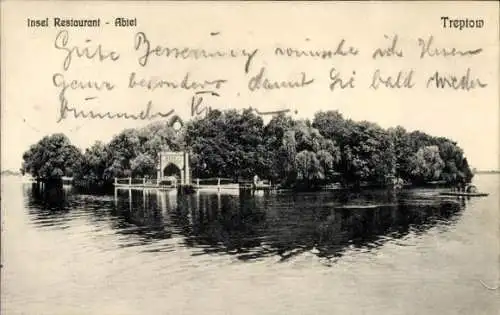 Insel Restaurant - Abtei
Treptow
Gute Besserung wünsche ich Ihnen
ganz besonders damit Sie bald wieder
kommen